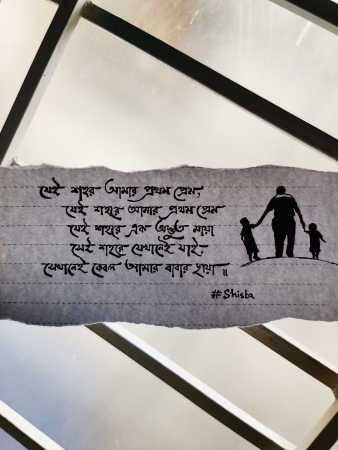 যেই শহর আমার প্রথম প্রেম,
যেই শহরে আমার প্রথম প্রেম
যেই শহরে এক অদ্ভুত মায়া
সেই শহরে যেখানেই যাই.
সেখানেই কেবল আমার বাবার ছায়া ॥
#Shista